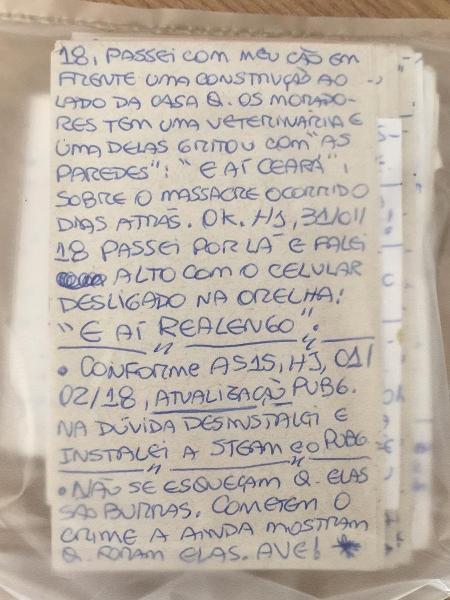 18, PASSEI COM MEU CÃO EM
FRENTE UMA CONSTRUÇÃO AO
LADO DA CASA Q. OS MORADO-
RES TEM UMA VETERINÁRIA E
UMA DELAS GRITOU COM "AS
PAREDES": "E AÍ CEARÁ",
SOBRE O MASSACRE OCORRIDO
DIAS ATRÁS. OK. HJ, 31/01/
18 PASSEI POR LÁ E FALEI
ALTO COM O CELULAR
DESLIGADO NA ORELHA:
"E AÍ REALENGO".
• CONFORME AS15, HJ, 01/
02/18, ATUALIZAÇÃO PUBG.
NA DÚVIDA DESINSTALEI E
INSTALEI A STEAM E O PUBG.
• NÃO SE ESQUEÇAM Q. ELAS
SÃO BURRAS. COMETEM O
CRIME A AINDA MOSTRAM
Q. FORAM ELAS. AVE!